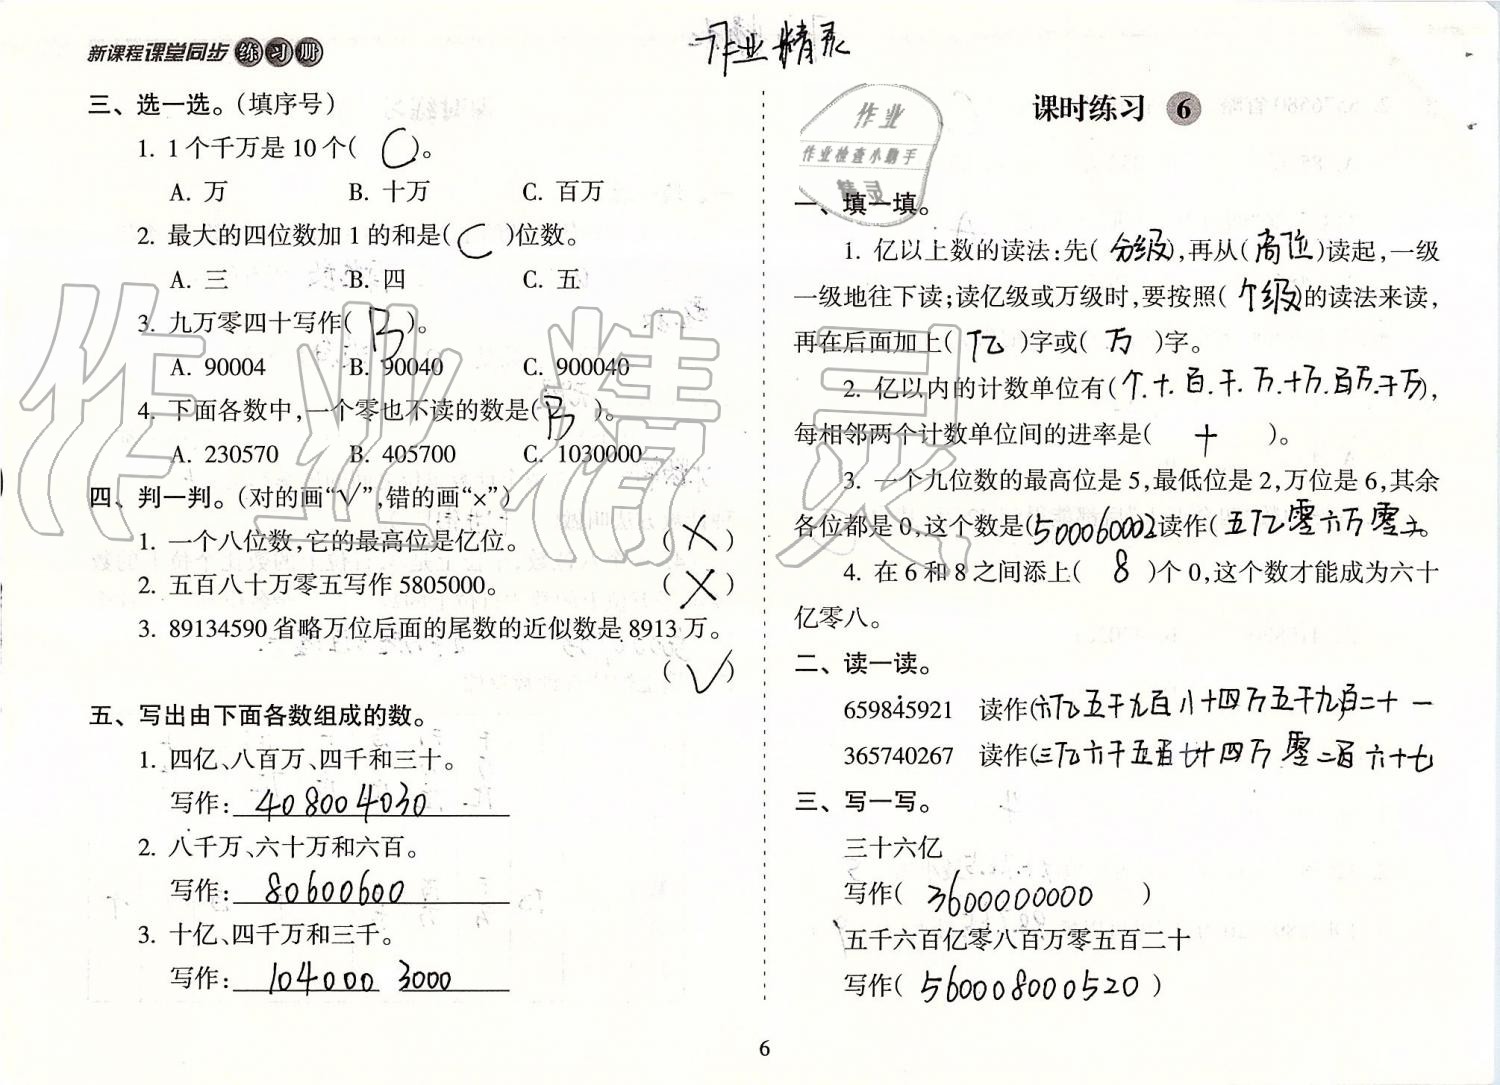 新课程课堂同步练习册
作业精灵
三、选一选。(填序号)
1. 1个千万是10个( C )。
A. 万 B. 十万 C. 百万
2. 最大的四位数加1的和是( C )位数。
A. 三 B. 四 C. 五
3. 九万零四十写作( B )。
A. 90004 B. 90040 C. 900040
4. 下面各数中,一个零也不读的数是( B )。
A. 230570 B. 405700 C. 1030000
四、判一判。(对的画“√”,错的画“×”)
1. 一个八位数,它的最高位是亿位。 ( × )
2. 五百八十万零五写作5805000。 ( × )
3. 89134590省略万位后面的尾数的近似数是8913万。
( √ )
五、写出由下面各数组成的数。
1. 四亿、八百万、四千和三十。
写作: 408004030
2. 八千万、六十万和六百。
写作: 80600600
3. 十亿、四千万和三千。
写作: 104000 3000
作业
作业检查小助手
精灵
课时练习 6
一、填一填。
1. 亿以上数的读法:先( 分级 ),再从( 高位 )读起,一级
一级地往下读;读亿级或万级时,要按照( 个级 )的读法来读,
再在后面加上( 亿 )字或( 万 )字。
2. 亿以内的计数单位有( 个.十.百.千.万.十万.百万.千万 ),
每相邻两个计数单位间的进率是( 十 )。
3. 一个九位数的最高位是5,最低位是2,万位是6,其余
各位都是0,这个数是( 500060002 )读作( 五亿零六万零二 )。
4. 在6和8之间添上( 8 )个0,这个数才能成为六十
亿零八。
二、读一读。
659845921 读作(六亿五千九百八十四万五千九百二十一
365740267 读作(三亿六千五百七十四万零二百六十七
三、写一写。
三十六亿
写作( 3600000000 )
五千六百亿零八百万零五百二十
写作( 560008000520 )
6
作业精灵